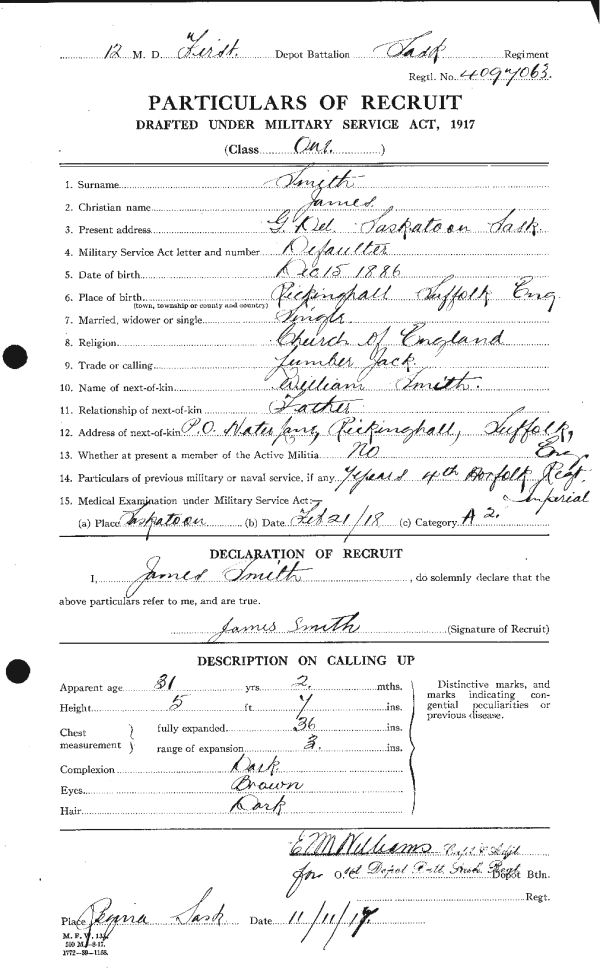 12 M. D. First. Depot Battalion Sask Regiment
Regtl. No. 4097063.
PARTICULARS OF RECRUIT
DRAFTED UNDER MILITARY SERVICE ACT, 1917
(Class One. )
1. Surname Smith
2. Christian name James
3. Present address G. Del. Saskatoon Sask.
4. Military Service Act letter and number Defaulter
5. Date of birth Dec 15 1886
6. Place of birth Rickinghall Suffolk Eng
(town, township or county and country)
7. Married, widower or single Single
8. Religion Church of England
9. Trade or calling Lumber Jack.
10. Name of next-of-kin William Smith.
11. Relationship of next-of-kin Father
12. Address of next-of-kin P.O. Rickinghall, Suffolk,
Eng
13. Whether at present a member of the Active Militia No
14. Particulars of previous military or naval service, if any 7 years 4th Norfolk Regt.
Imperial
15. Medical Examination under Military Service Act:—
(a) Place Saskatoon (b) Date Feb 21/18 (c) Category A 2.
DECLARATION OF RECRUIT
I, James Smith, do solemnly declare that the
above particulars refer to me, and are true.
James Smith (Signature of Recruit)
DESCRIPTION ON CALLING UP
Apparent age 31 yrs 2. mths.
Height 5 ft 7 ins.
Chest measurement fully expanded 36 ins.
range of expansion 3. ins.
Complexion Dark
Eyes Brown
Hair Dark
Distinctive marks, and
marks indicating con-
genital peculiarities or
previous disease.
E M Williams
for O. 1st Depot Batt. Sask. Regt Depot Btln.
Regt.
Place Regina Sask Date 11/11/17
M. F. W. 133
500 M.-8-17.
1772-39-1158.